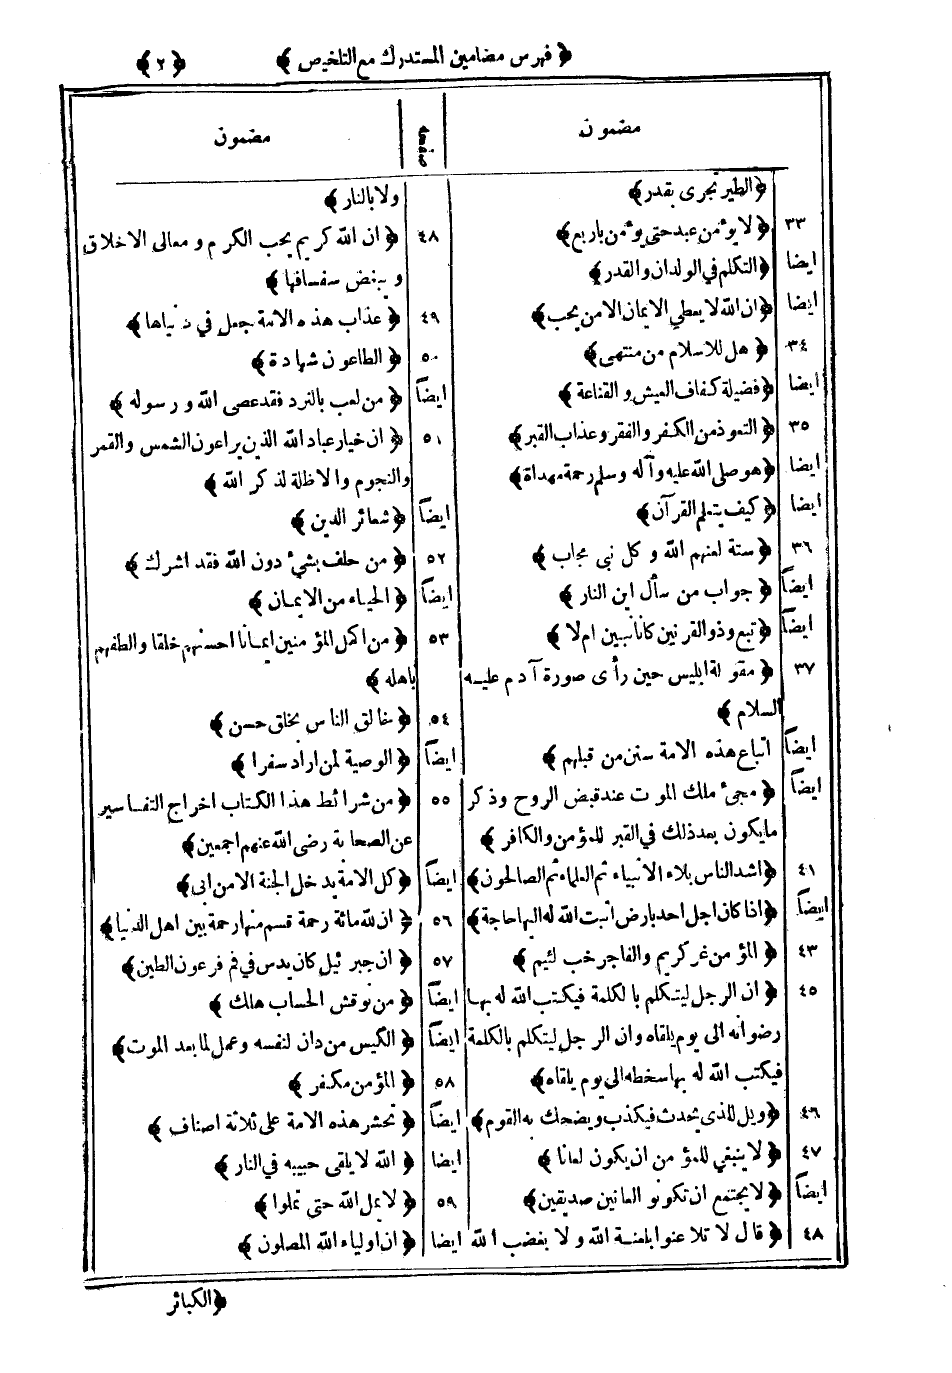 ﴿ فهرس مضامين المستدرك مع التلخيص ﴾ ﴿ ٢ ﴾
مضمون
﴿ الطير تجرى بقدر ﴾
٣٣ ﴿ لا يؤمن عبد حتى يؤمن باربع ﴾
ايضا ﴿ التكلم في الولدان والقدر ﴾
ايضا ﴿ ان الله لا يعطي الايمان الا من يحب ﴾
٣٤ ﴿ هل للاسلام من منتهى ﴾
ايضا ﴿ فضيلة كفاف العيش والقناعة ﴾
٣٥ ﴿ التعوذ من الكفر والفقر وعذاب القبر ﴾
ايضا ﴿ هو صلى الله عليه وآله وسلم رحمة مهداة ﴾
ايضا ﴿ كيف يتعلم القرآن ﴾
٣٦ ﴿ ستة لعنهم الله وكل نبى مجاب ﴾
ايضاً ﴿ جواب من سأل اين النار ﴾
ايضاً ﴿ تبع وذو القرنين كانا نبيين ام لا ﴾
٣٧ ﴿ مقولة ابليس حين رأى صورة آدم عليه
السلام ﴾
ايضاً اتباع هذه الامة سنن من قبلهم ﴾
ايضاً ﴿ مجئ ملك الموت عند قبض الروح وذكر
ما يكون بعد ذلك في القبر للمؤمن والكافر ﴾
٤١ ﴿ اشد الناس بلاء الانبياء ثم العلماء ثم الصالحون ﴾
ايضاً ﴿ اذا كان اجل احد بارض اثبت الله له اليها حاجة ﴾
٤٣ ﴿ المؤمن غر كريم والفاجر خب لئيم ﴾
٤٥ ﴿ ان الرجل ليتكلم بالكلمة فيكتب الله له بها
رضوانه الى يوم يلقاه وان الرجل ليتكلم بالكلمة
فيكتب الله له بها سخطه الى يوم يلقاه ﴾
٤٦ ﴿ ويل للذى يحدث فيكذب ويضحك به القوم ﴾
٤٧ ﴿ لا ينبغي للمؤمن ان يكون لعانا ﴾
ايضاً ﴿ لا يجتمع ان تكونوا لعانين صديقين ﴾
٤٨ ﴿ قال لا تلاعنوا بلعنة الله ولا بغضب الله
صفحه مضمون
ولا بالنار ﴾
٤٨ ﴿ ان الله كريم يحب الكرم ومعالى الاخلاق
ويبغض سفسافها ﴾
٤٩ ﴿ عذاب هذه الامة جعل في دنياها ﴾
٥٠ ﴿ الطاعون شهادة ﴾
ايضاً ﴿ من لعب بالنرد فقد عصى الله ورسوله ﴾
٥١ ﴿ ان خيار عباد الله الذين يراعون الشمس والقمر
والنجوم والاظلة لذكر الله ﴾
ايضاً ﴿ شعائر الدين ﴾
٥٢ ﴿ من حلف بشئ دون الله فقد اشرك ﴾
ايضاً ﴿ الحياء من الايمان ﴾
٥٣ ﴿ من اكمل المؤمنين ايمانا احسنهم خلقا والطفهم
باهله ﴾
٥٤ ﴿ خالق الناس بخلق حسن ﴾
ايضاً ﴿ الوصية لمن اراد سفرا ﴾
٥٥ ﴿ من شرائط هذا الكتاب اخراج التفاسير
عن الصحابة رضى الله عنهم اجمعين ﴾
ايضاً ﴿ كل الامة يدخل الجنة الا من ابى ﴾
٥٦ ﴿ ان لله مائة رحمة قسم منها رحمة بين اهل الدنيا ﴾
٥٧ ﴿ ان جبرئيل كان يدس في فم فرعون الطين ﴾
ايضاً ﴿ من نوقش الحساب هلك ﴾
ايضاً ﴿ الكيس من دان لنفسه وعمل لما بعد الموت ﴾
٥٨ ﴿ المؤمن مكفر ﴾
ايضاً ﴿ تحشر هذه الامة على ثلاثة اصناف ﴾
ايضا ﴿ الله لا يلقى حبيبه في النار ﴾
٥٩ ﴿ لا يمل الله حتى تملوا ﴾
ايضا ﴿ ان اولياء الله المصلون ﴾
﴿ الكبائر